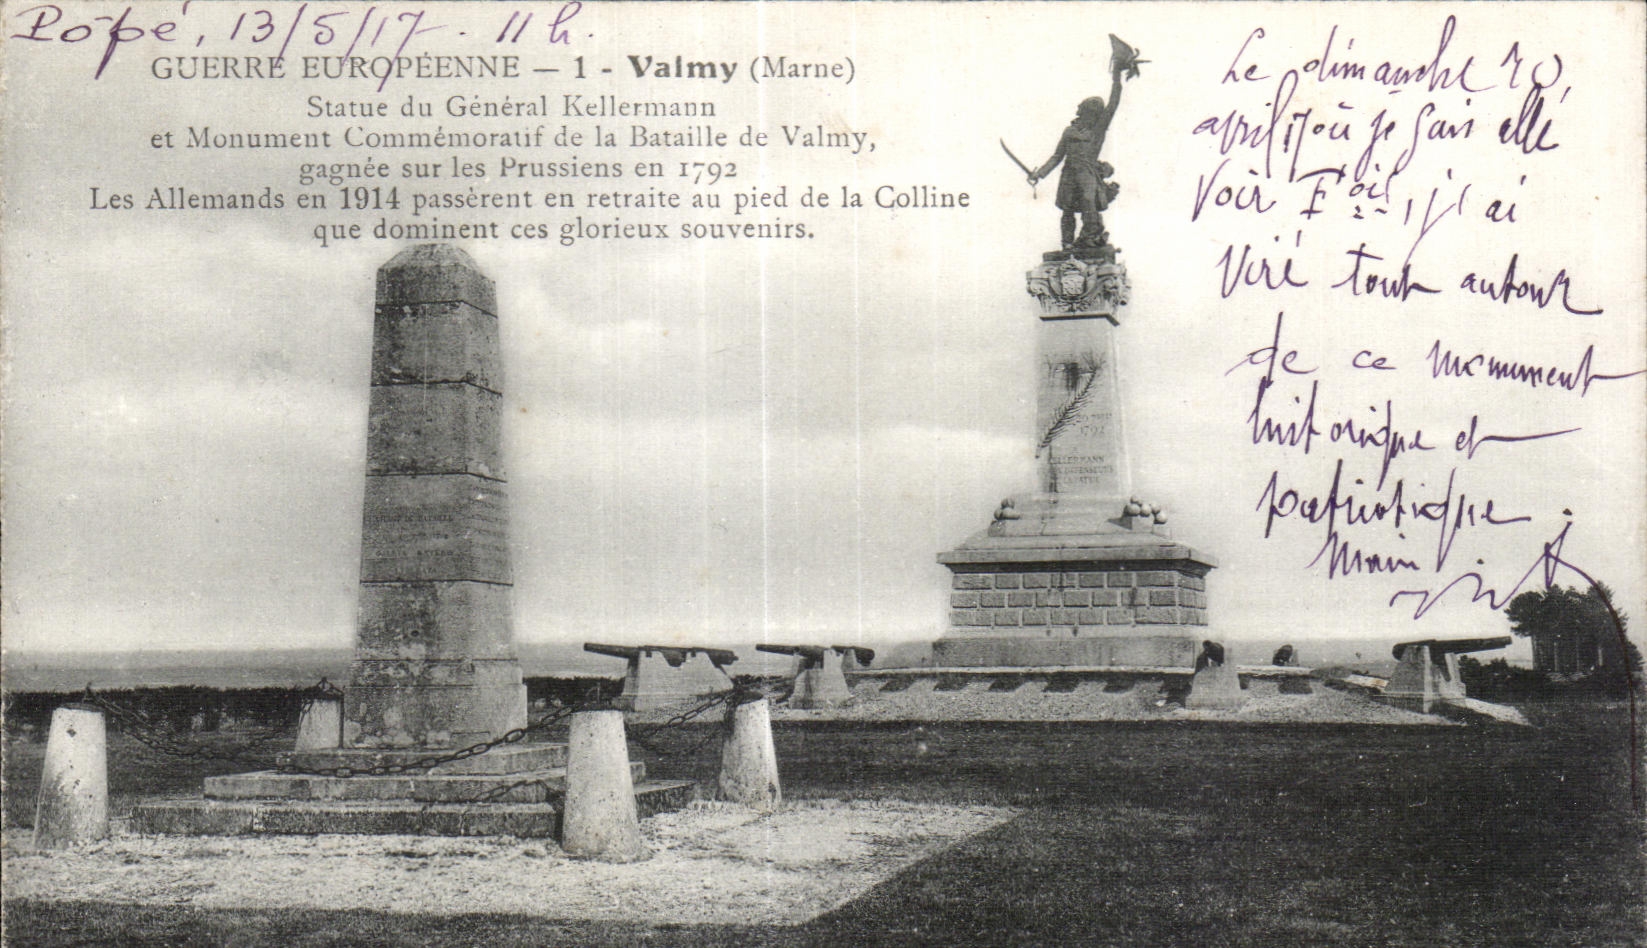 Popé, 13/5/17. 11 h.
GUERRE EUROPÉENNE — 1 - Valmy (Marne)
Statue du Général Kellermann
et Monument Commémoratif de la Bataille de Valmy,
gagnée sur les Prussiens en 1792
Les Allemands en 1914 passèrent en retraite au pied de la Colline
que dominent ces glorieux souvenirs.
Le dimanche
avril 17 où je suis allé
voir
, j'ai
viré tout autour
de ce monument
historique et
patriotique.
1792
KELLERMANN